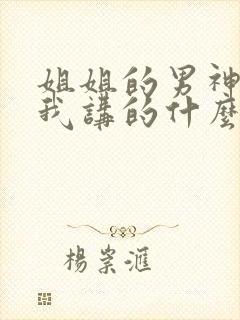 姐姐的男神
我講的什麼
楊崇滙